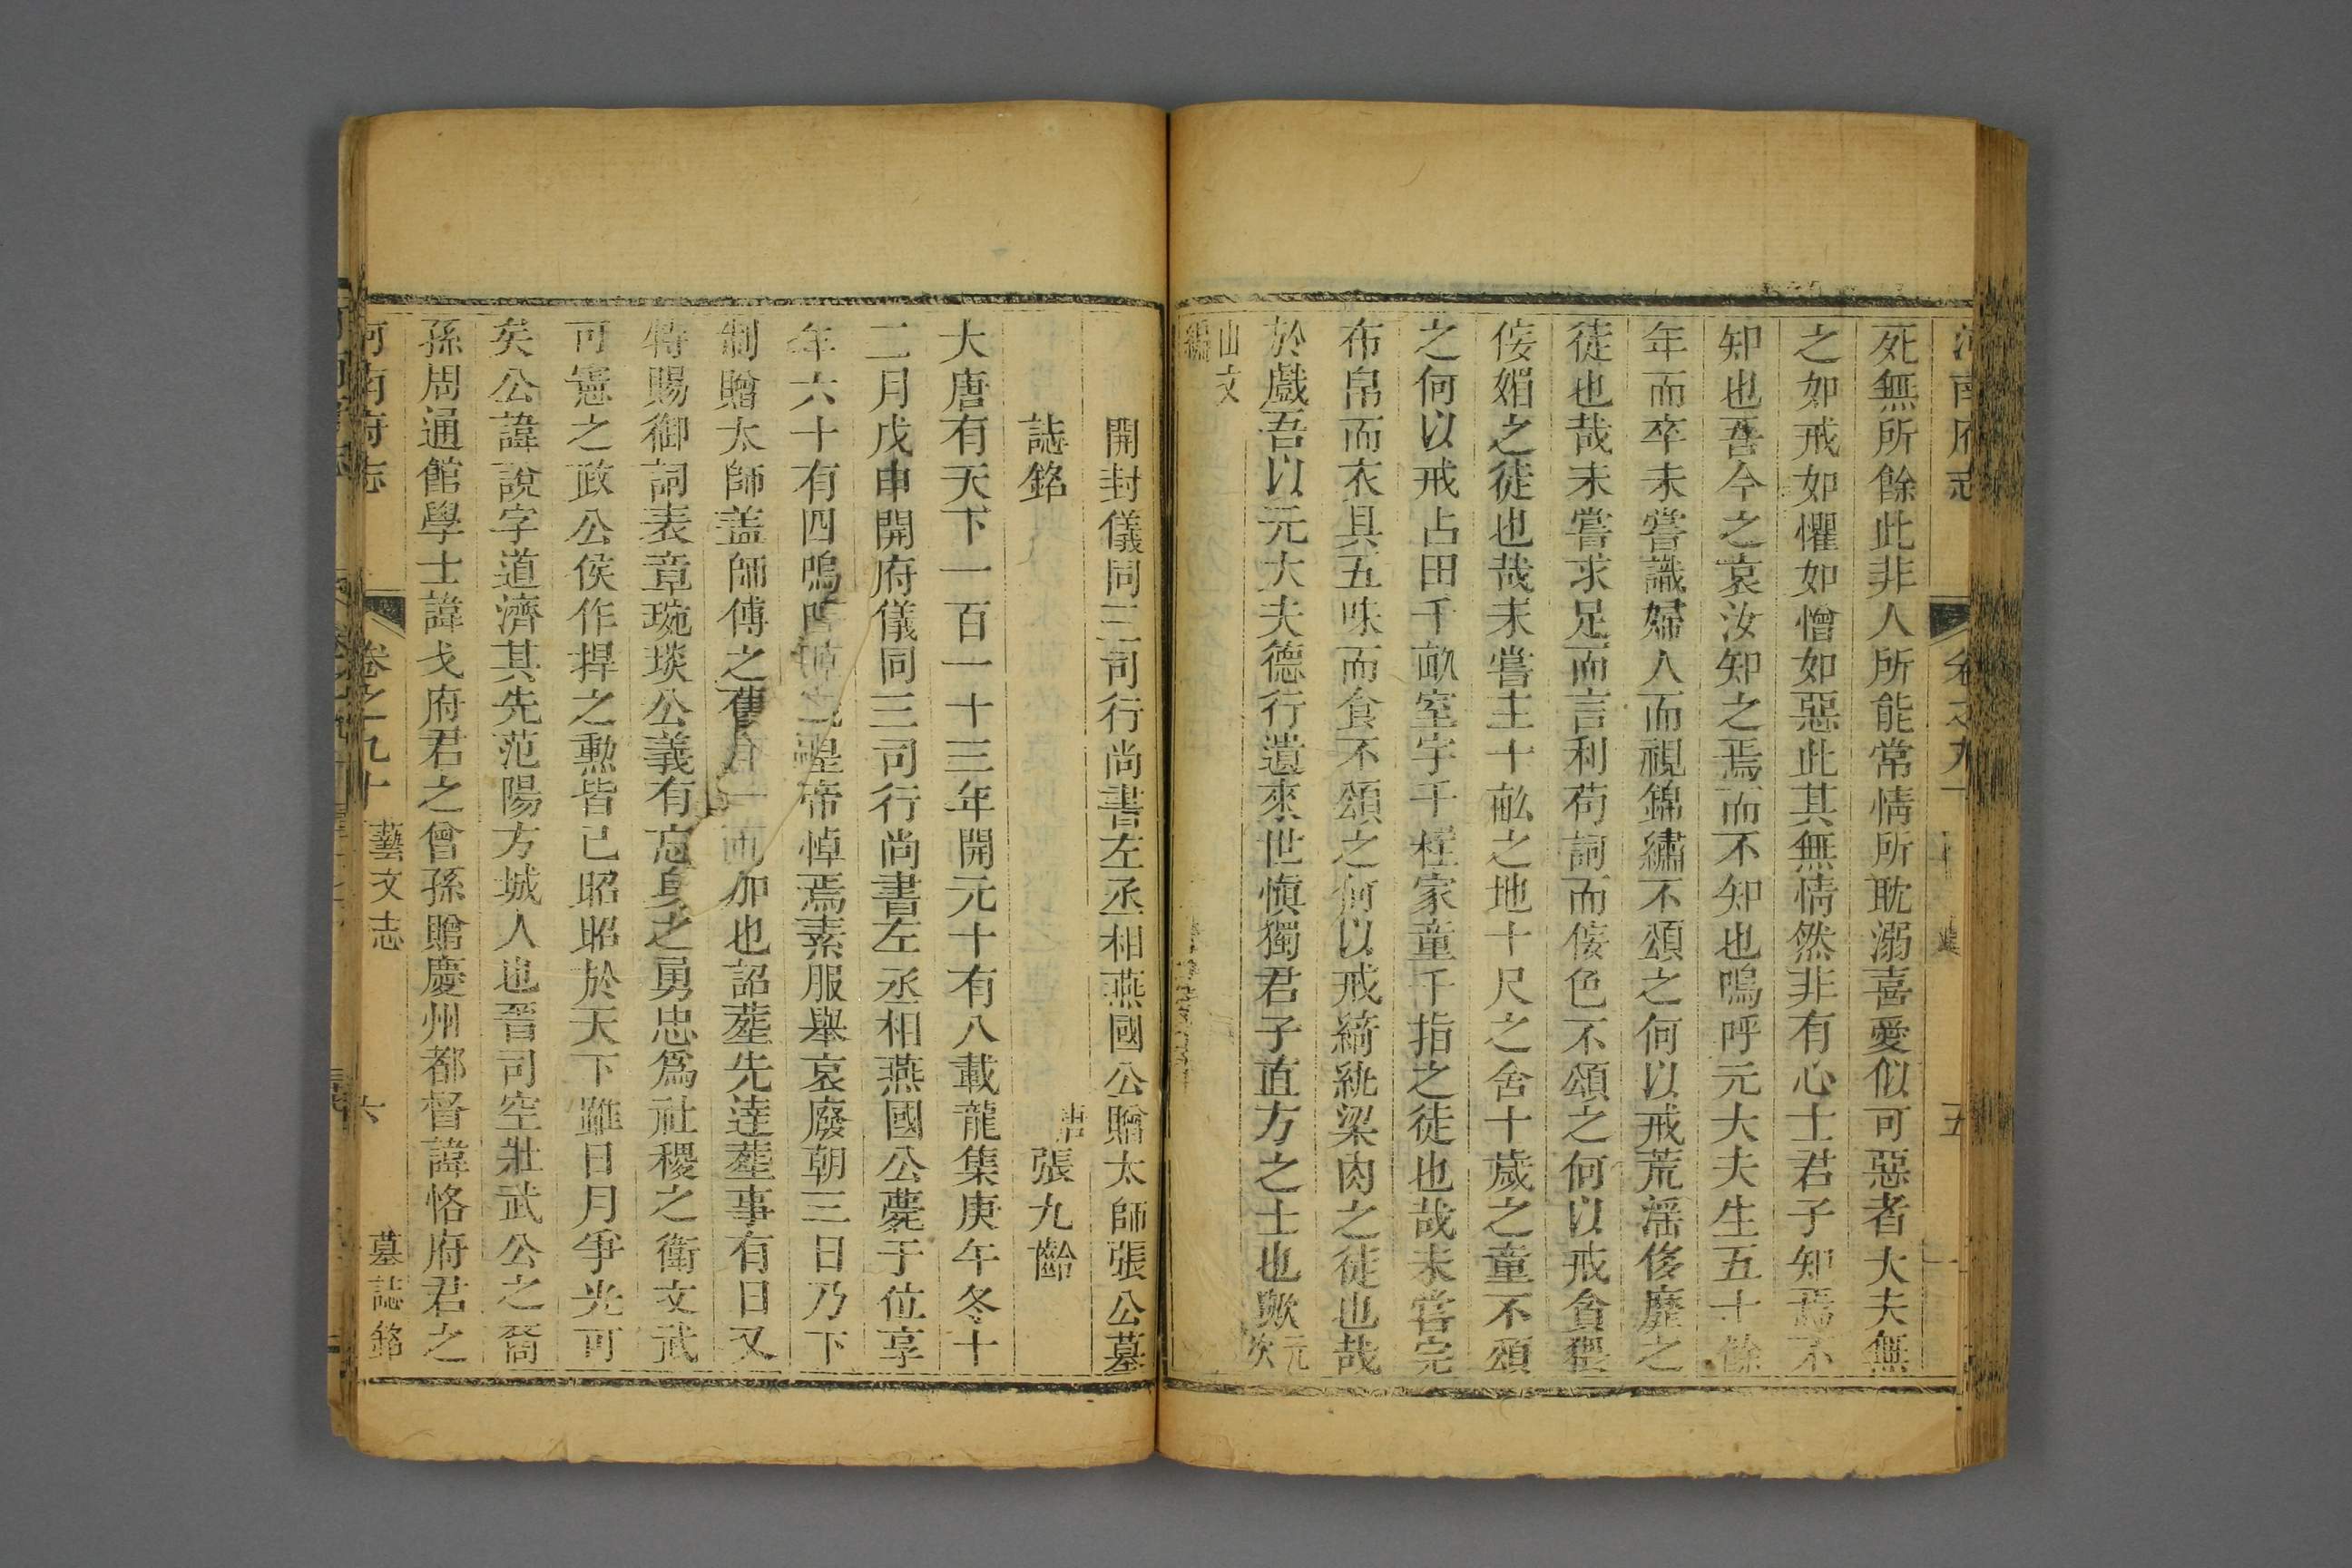 死無所餘此非人所能常情所耽溺喜愛似可惡者大夫無
之如戒如懼如憎如惡此其無情然非有心士君子知焉不
知也吾今之哀汝知之焉而不知也嗚呼元大夫生五十餘
年而卒未嘗識婦人而視錦繡不頌之何以戒荒淫侈靡之
徒也哉未嘗求足而言利苟詞而侫色不頌之何以戒貪猥
侫媚之徒也哉未嘗主十畝之地十尺之舍十歲之童不頌
之何以戒占田千畝室宇千程家童千指之徒也哉未嘗完
布帛而衣具五味而食不頌之何以戒綺紈梁肉之徒也哉
於戲吾以元大夫德行遺來世愼獨君子直方之士也歟元次
山文編
開封儀同三司行尚書左丞相燕國公贈太師張公墓
誌銘 唐張九齡
大唐有天下一百一十三年開元十有八載龍集庚午冬十
二月戊申開府儀同三司行尚書左丞相燕國公薨于位享
年六十有四嗚 皇帝悼焉素服舉哀廢朝三日乃下
制贈太師盖師傅之 一而加也詔葬先逹葬事有日又
特賜御詞表章琬琰公義有忘身之勇忠爲社稷之衛文武
可憲之政公侯作捍之勲皆已昭昭於天下雖日月爭光可
矣公諱說字道濟其先范陽方城人也晉司空壯武公之裔
孫周通館學士諱戈府君之曾孫贈慶州都督諱恪府君之
河南府志 卷之九十 藝文志 六 墓誌銘